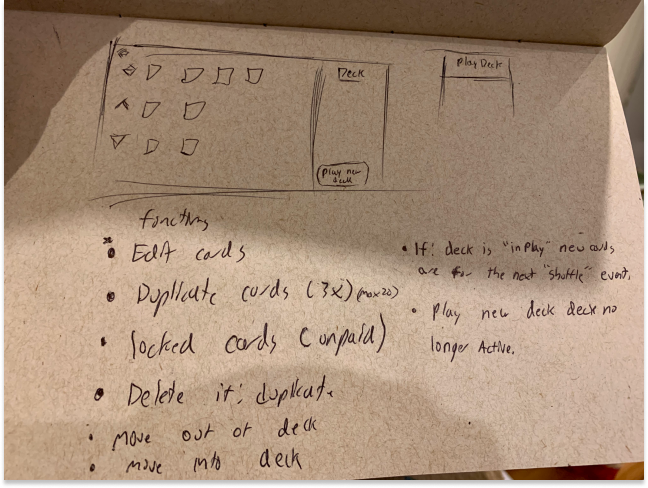 Deck
Play new
deck
Play Deck
functions
Edit cards
Duplicate cards (3x) (max 20)
locked cards (unpaid)
Delete if: duplicate
move out of deck
move into deck
If: deck is "in Play" new cards
are for the next "shuffle" event.
Play new deck deck no
longer Active.